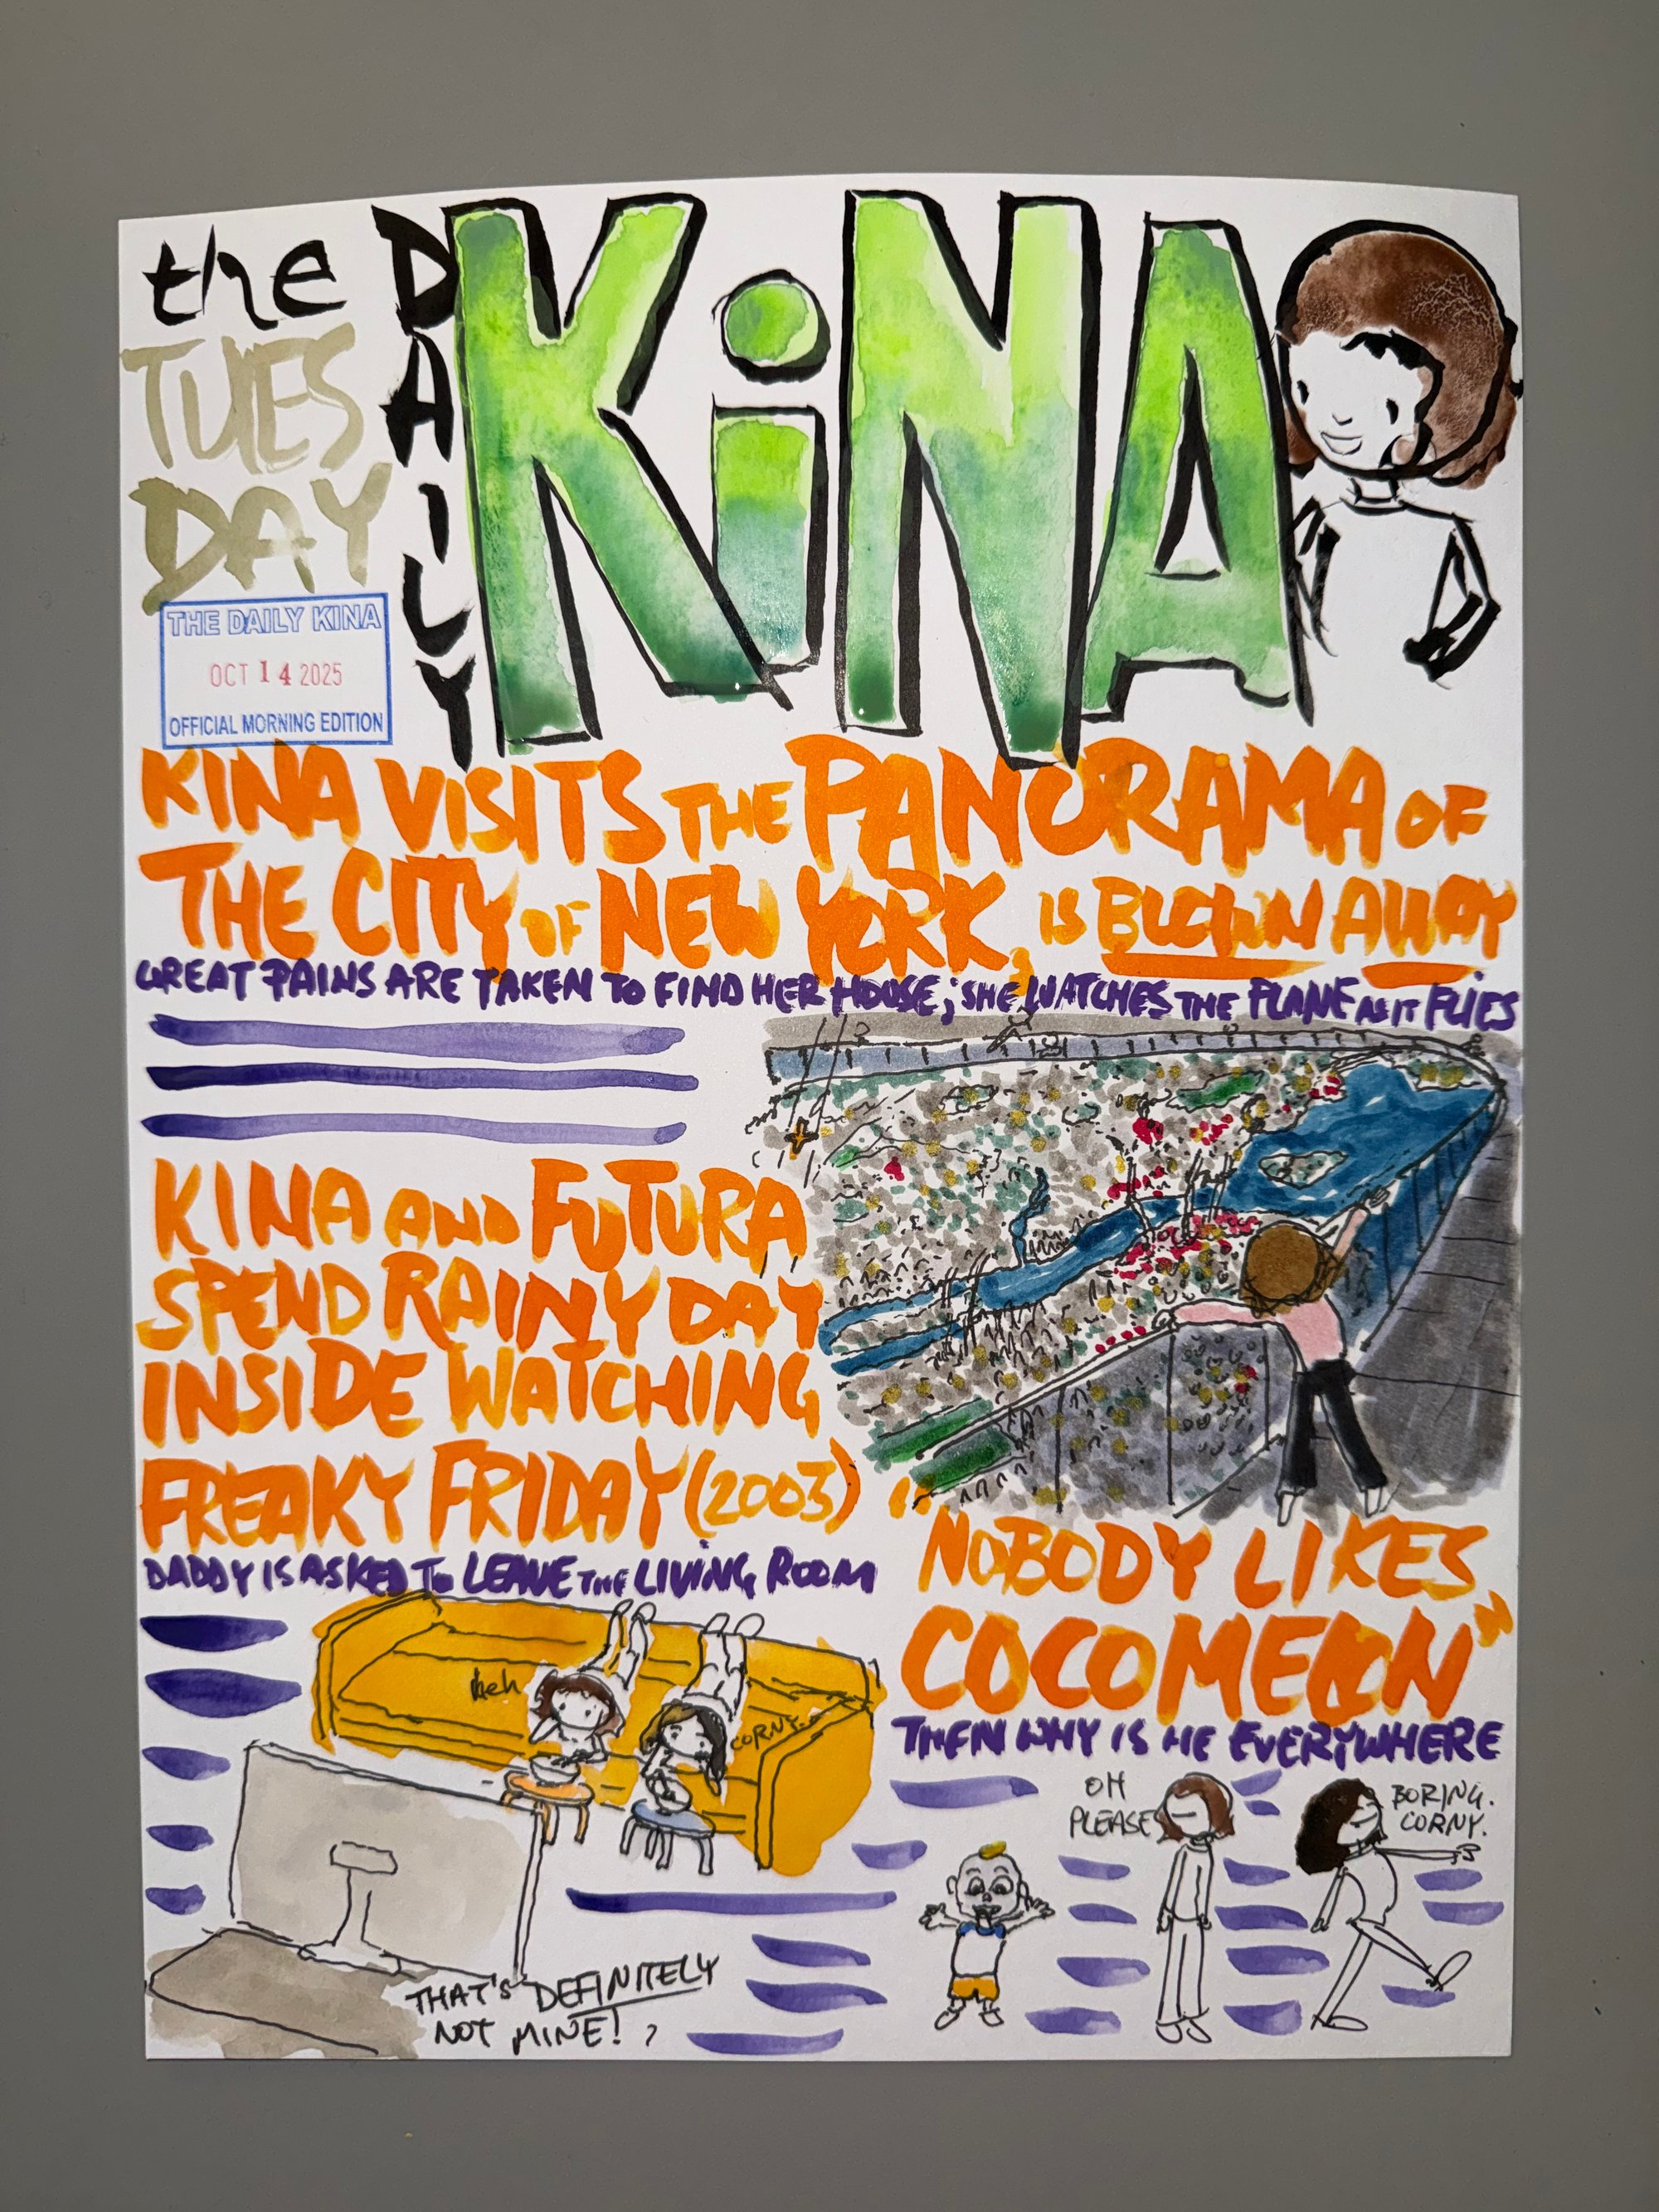 the
TUES
DAY
DAILY
KiNA
THE DAILY KINA
OCT 14 2025
OFFICIAL MORNING EDITION
KINA VISITS THE PANORAMA OF
THE CITY OF NEW YORK, IS BLOWN AWAY
GREAT PAINS ARE TAKEN TO FIND HER HOUSE; SHE WATCHES THE PLANE AS IT FLIES
KINA AND FUTURA
SPEND RAINY DAY
INSIDE WATCHING
FREAKY FRIDAY (2003)
DADDY IS ASKED TO LEAVE THE LIVING ROOM
heh
CORNY.
THAT'S DEFINITELY
NOT MINE!
"NOBODY LIKES
COCOMELON"
THEN WHY IS HE EVERYWHERE
OH
PLEASE
BORING.
CORNY.